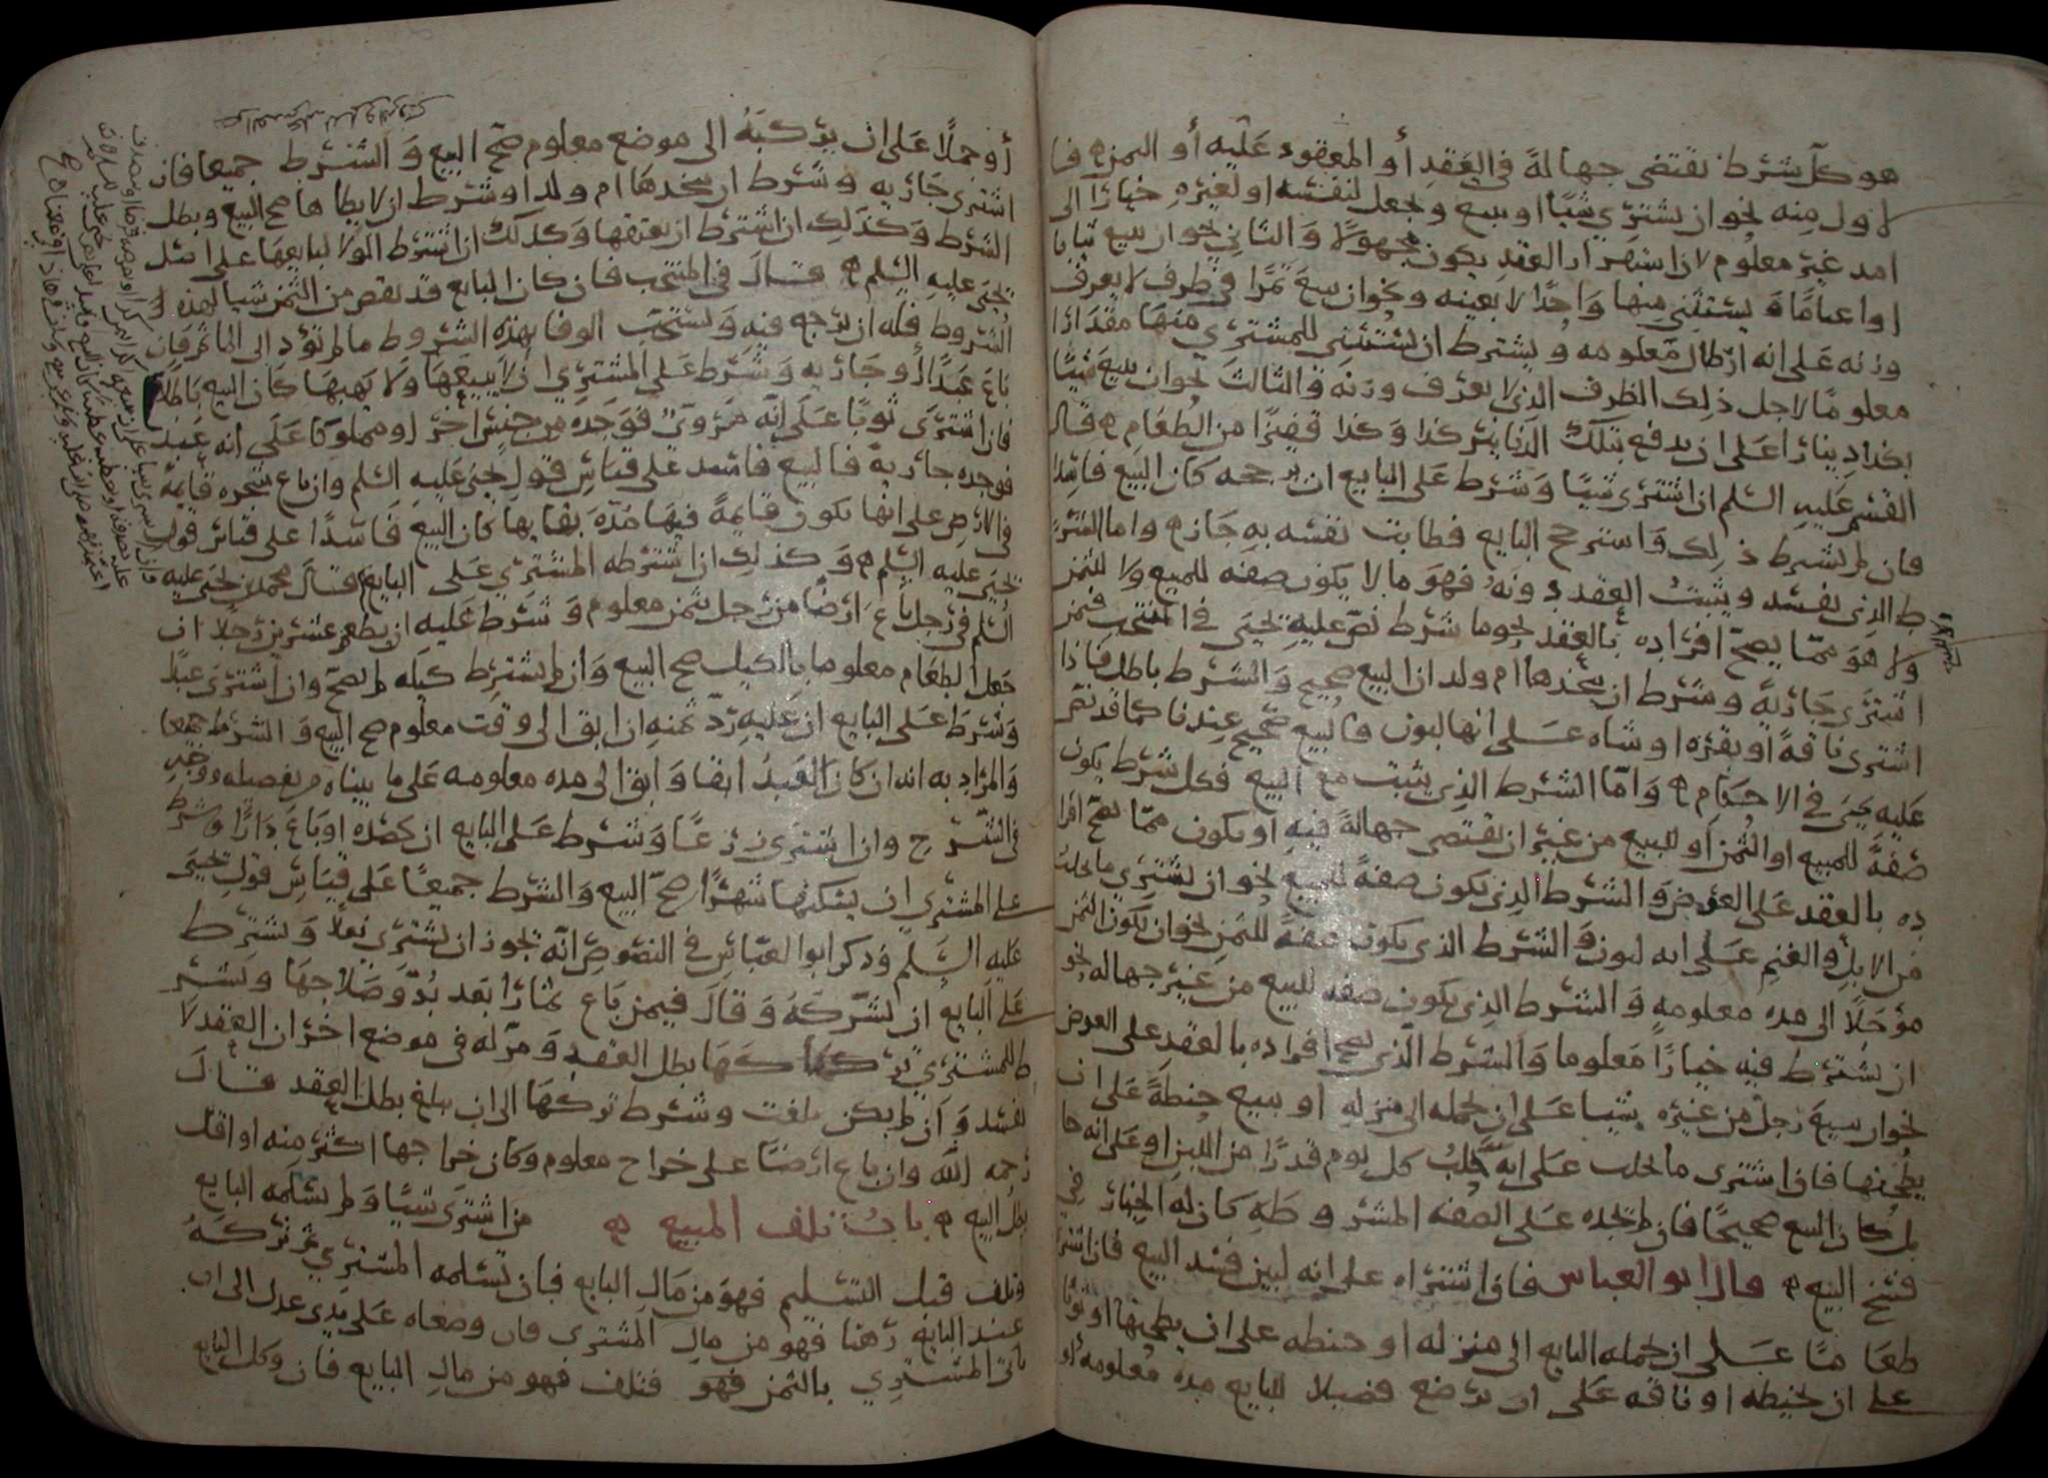 هو كل شرط تقتضى جهالة في العقد أو المعقود عليه أو الثمن فا
لاول منه نحو ان يشترى شيئا او يبيع ويجعل لنفسه او لغيره خيارا الى
امد غير معلوم لان استقرار العقد يكون مجهولا والثاني نحو ان يبيع ثيابا
او اغناما ويستثني منها واحدا لا بعينه ونحو ان يبيع تمرا في ظرف لا يعرف
وزنه على انه ارطال معلومه ويشترط ان يستثني للمشتري منها مقدارا
معلوما لاجل ذلك الظرف الذي لا يعرف وزنه والثالث نحو ان يبيع شيئا
بكذا دينارا على ان يدفع بتلك الدنانير كذا وكذا قفيزا من الطعام قال
القسم عليه السلم ان اشترى شيئا وشرط على البايع ان يرجحه كان البيع فاسدا
فان لم يشرط ذلك واسترجح البايع فطابت نفسه به جاز واما الشر
ط الذي يفسد ويثبت العقد دونه فهو ما لا يكون صفه للمبيع ولا للثمن
ولا هو مما يصح افراده بالعقد نحو ما شرط نص عليه يحيى في المنتخب فمن
اشترى جارية وشرط ان يتخذها ام ولد ان البيع صحيح والشرط باطل فاذا
اشترى ناقة او بقره او شاه على انها لبون فالبيع صحيح عندنا كما قد نص
عليه يحيى في الاحكام واما الشرط الذي يثبت مع البيع فكل شرط يكون
صفة للمبيع او الثمن او للبيع من غير ان تقتضى جهالة فيه او يكون مما يصح افرا
ده بالعقد على العوض والشرط الذي يكون صفة للمبيع نحو ان يشتري ما يحلب
من الابل والغنم على انه لبون والشرط الذي يكون صفة للثمن نحو ان يكون الثمن
مؤجلا الى مده معلومه والشرط الذي يكون صفه للبيع من غير جهاله نحو
ان يشترط فيه خيارا معلوما والشرط الذي يصح افراده بالعقد على العوض
نحو ان يبيع رجل من غيره شيئا على ان يحمله الى منزله او يبيع حنطة على ان
يطحنها فاذا اشترى ما يحلب على انه يحلب كل يوم قدرا من اللبن او على انه حا
مل كان البيع صحيحا فان لم يجده على الصفه المشروطة كان له الخيار في
فسخ البيع قال ابو العباس فاذا اشتراه على انه لبين فسد البيع فان اشترا
طعاما على ان يحمله البايع الى منزله او حنطه على ان يطحنها او ثوبا
على ان يخيطه او ناقه على ان ترضع فصيلا للبايع مده معلومه او
أو جملا على ان يركبه الى موضع معلوم صح البيع والشرط جميعا فان
اشترى جارية وشرط ان يتخذها ام ولد او شرط ان لا يطاها صح البيع وبطل
الشرط وكذلك ان اشترط ان يعتقها وكذلك ان اشترط الولا لبايعها على اصل
يحيى عليه السلم قال في المنتخب فان كان البايع قد نقص من الثمن شيا لهذه
الشروط فله ان يرجع فيه ويستحب الوفا بهذه الشروط ما لم تؤد الى الماثم فان
باع عبدا او جارية وشرط على المشتري ان لا يبيعها ولا يهبها كان البيع باطلا
فان اشترى ثوبا على انه مروي فوجده من جنس اخر او مملوكا على انه عبد
فوجده جارية فالبيع فاسد على قياس قول يحيى عليه السلم وان باع شجره قايمة
في الارض على انها تكون قايمة فيها مدة بقايها كان البيع فاسدا على قياس قول
يحيى عليه السلم وكذلك ان اشترطه المشتري على البايع قال محمد بن يحيى عليه
السلم في رجل باع ارضا من رجل بثمن معلوم وشرط عليه ان يطعم عشرين رجلا ان
جعل الطعام معلوما بالكيل صح البيع وان لم يشترط كيله لم يصح وان اشترى عبدا
وشرط على البايع ان عليه رد ثمنه ان ابق الى وقت معلوم صح البيع والشرط جميعا
والمراد به انه ان كان العبد ابقا وابق الى مده معلومه على ما بيناه بتفصيله
في الشرح وان اشترى زرعا وشرط على البايع ان يحصده او باع دارا وشرط
على المشتري ان يسكنها شهرا صح البيع والشرط جميعا على قياس قول يحيى
عليه السلم وذكر ابو العباس في النصوص انه يجوز ان يشتري نعلا ويشترط
على البايع ان يشركه وقال فيمن باع ثمارا بعد بدو صلاحها ويشتر
ط للمشتري تركها بطل العقد ومر له في موضع اخر ان العقد لا
يفسد وان لم يكن بلغت وشرط تركها الى ان يبلغ بطل العقد قال
رحمه الله وان باع ارضا على خراج معلوم وكان خراجها اكثر منه او اقل
بطل البيع باب تلف المبيع من اشترى شيئا ولم يسلمه البايع
وتلف قبل التسليم فهو من مال البايع فان تسلمه المشتري ثم تركه
عند البايع رهنا فهو من مال المشتري فان وضعاه على يدي عدل الى ان
ياتي المشتري بالثمن فهو فتلف فهو من مال البايع فان وكل البايع